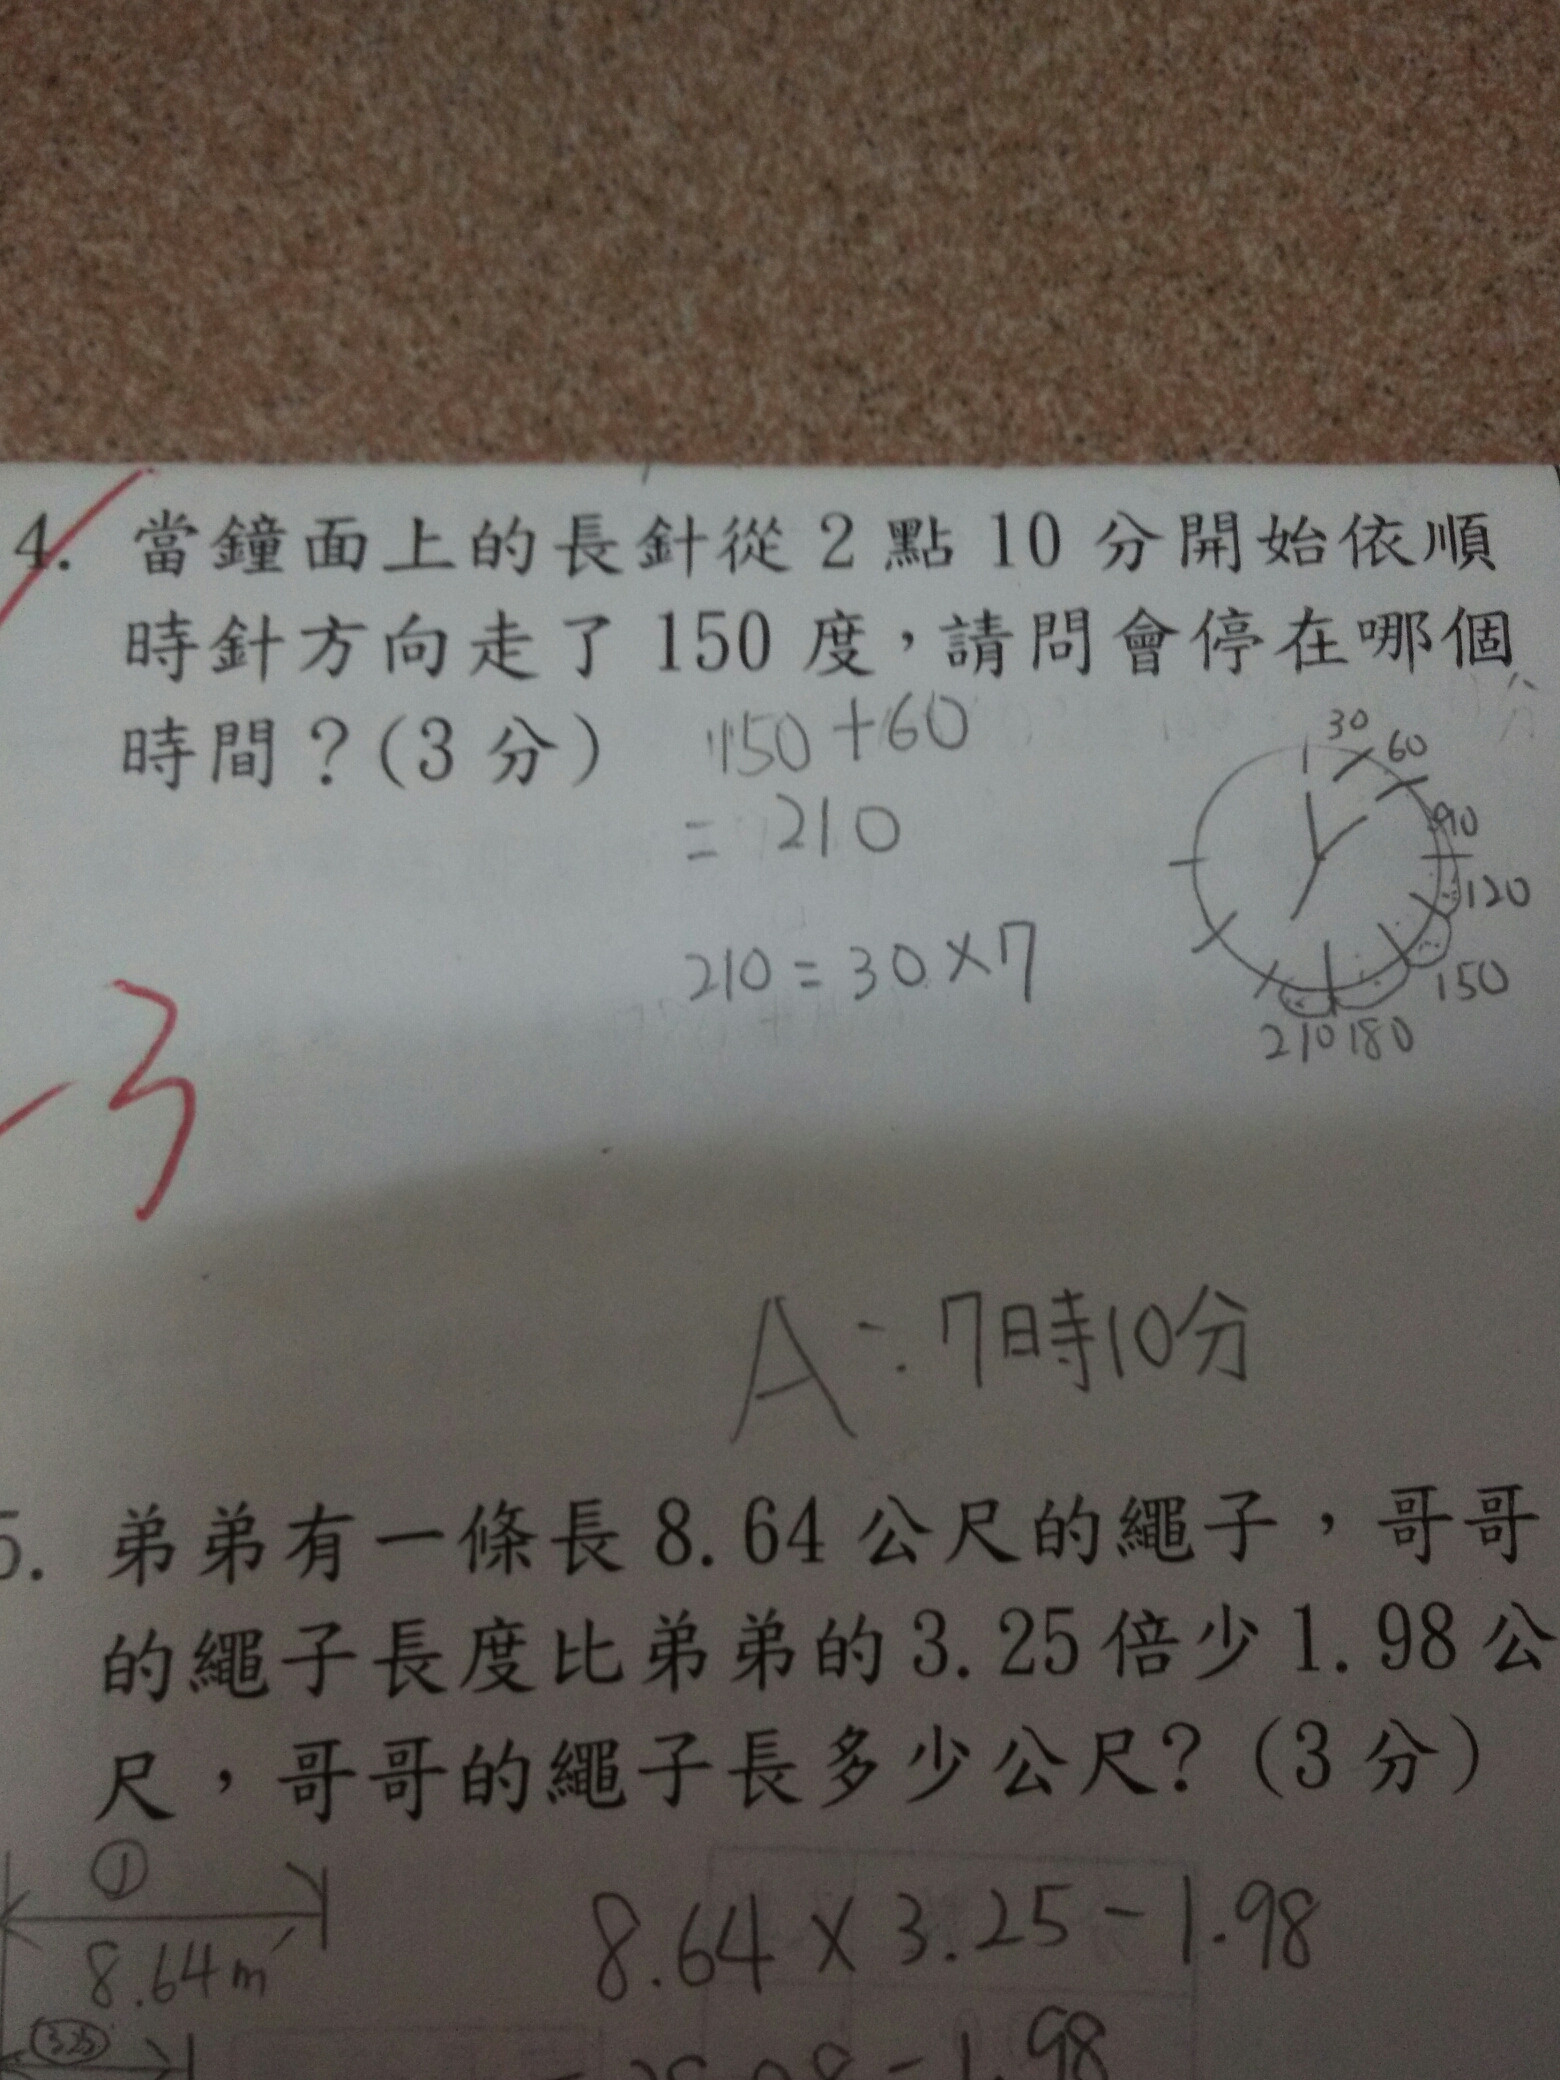 4. 當鐘面上的長針從 2 點 10 分開始依順
時針方向走了 150 度，請問會停在哪個
時間？(3 分)
150+60
= 210
210=30×7
30
60
90
120
150
180
210
-3
A:7時10分
5. 弟弟有一條長 8.64 公尺的繩子，哥哥
的繩子長度比弟弟的 3.25 倍少 1.98 公
尺，哥哥的繩子長多少公尺? (3 分)
①
8.64m
8.64×3.25-1.98
3.25
-1.98